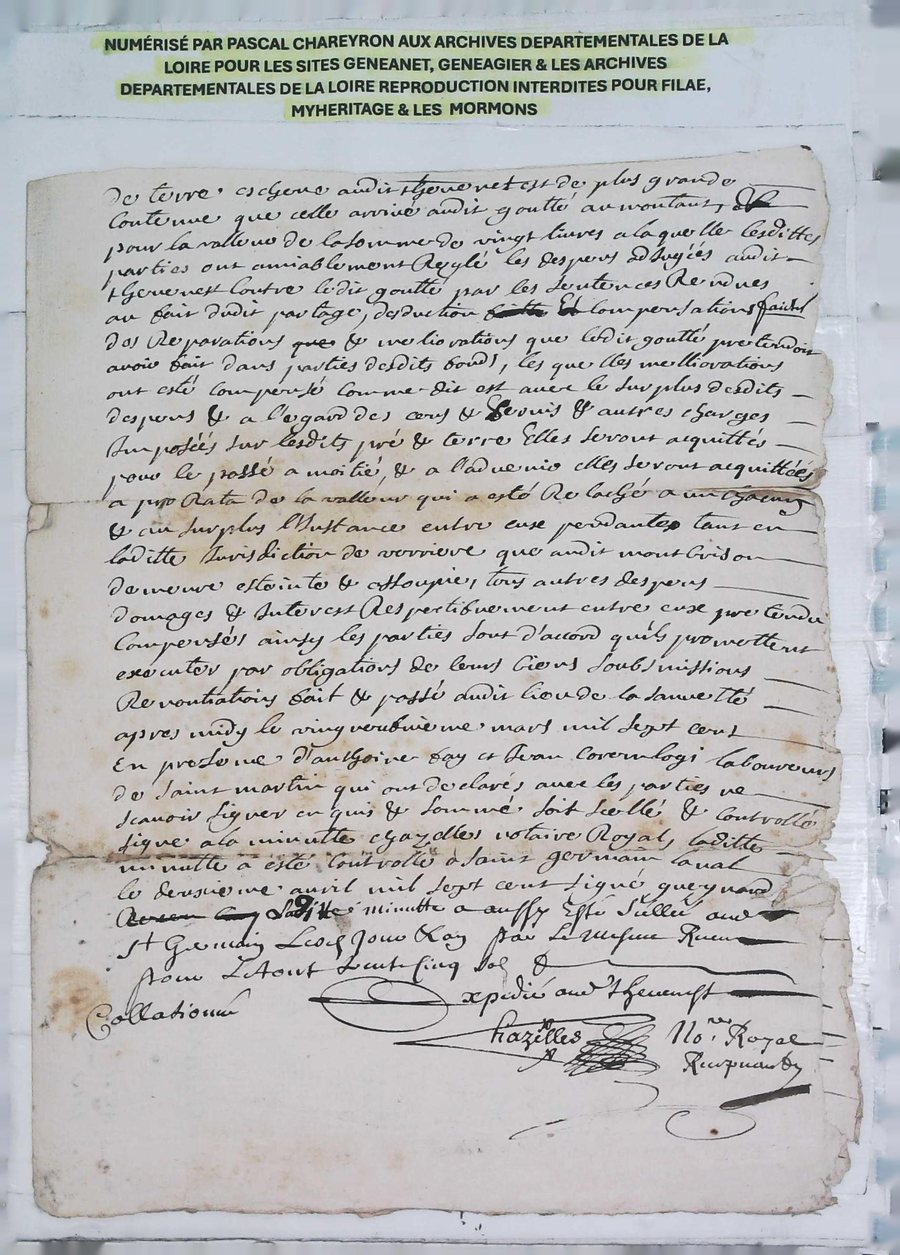 NUMÉRISÉ PAR PASCAL CHAREYRON AUX ARCHIVES DEPARTEMENTALES DE LA
LOIRE POUR LES SITES GENEANET, GENEAGIER & LES ARCHIVES
DEPARTEMENTALES DE LA LOIRE REPRODUCTION INTERDITES POUR FILAE,
MYHERITAGE & LES MORMONS
de terre eschene audit thevenet est de plus grande
contenue que celle arrivé audit goutté au montant,
pour la valleur de la somme de vingt livres a laquelle lesdittes
parties ont amiablement Reglé les despens adjugiés audit
thevenest contre ledit goutté par les sentences Rendues
au fait dudit partage, desduction compensations faictes
des Reparations & melioration que ledit goutté pretendoit
avoir fait dans parties desdits fonds, lesquelles melliorations
ont esté compensé comme dit est avec le surplus desdits
despens & a l'egard des cens & servis & autres charges
Imposéés sur lesdits pré & terre Elles seront acquittés
pour le passé a moitié, & a l'advenir elles seront acquittéés
a pro Rata de la valleur qui a esté Relaché a un chacun
& au surplus l'Instance entre eux pendante tant en
laditte Jurisdiction de verriere que audit montbrison
demeure esteinte & assoupie, tous autres despens
domages & Interest Respectivement entre eux pretendu
compensés ainsy les parties sont d'accord qu'ils promettent
exécuter par obligations de leurs biens soubsmissions
Renontiations fait & passé audit lieu de la sauveté
apres midy le vingt mars mil sept cens
En presence d'anthoine fay et Jean laboureurs
de saint martin qui ont declarés avec les parties ne
scavoir signer enquis & sommé soit scellé & controllé
signé a la minutte chazelles notaire Royal, laditte
minutte a esté controllé a saint germain laval
le deuxieme avril mil sept cent signé gueynard
Laditte minutte a aussy Esté scellée aud
St Germain Lesd Jour & an par Le mesme
pour Le tout trente cinq sol &
Expedié aud Thevenest
Collationné
Chazelles No.re Royal